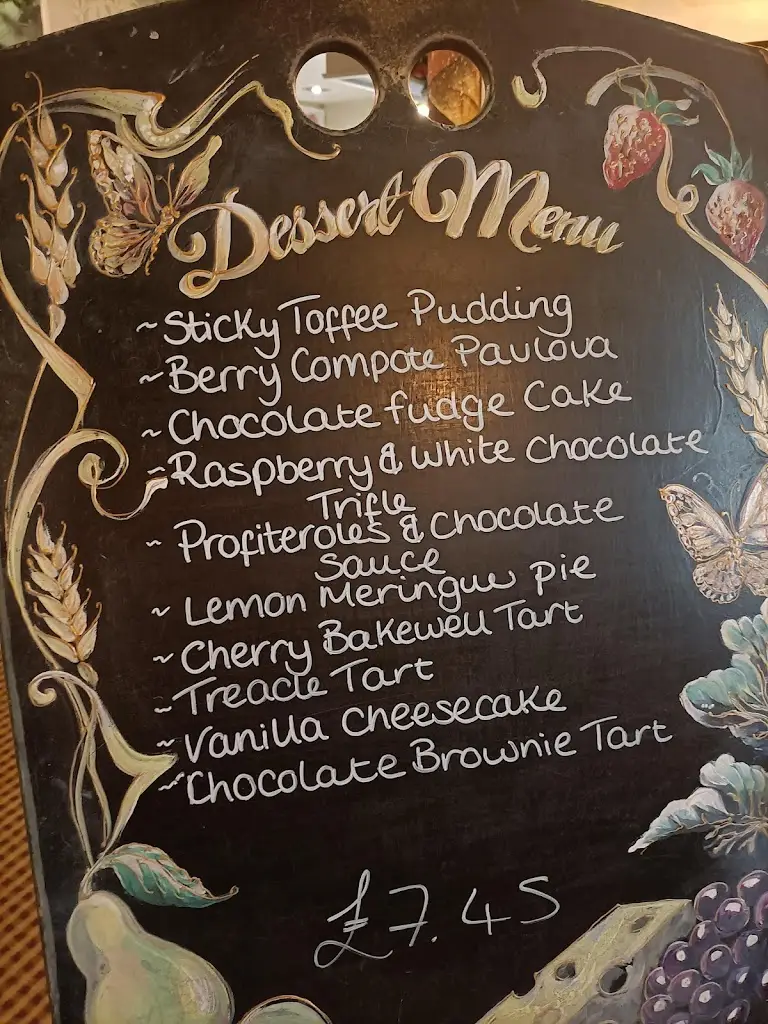 Dessert Menu
~Sticky Toffee Pudding
~Berry Compote Pavlova
~Chocolate fudge Cake
~Raspberry & White Chocolate
Trifle
~ Profiteroles & Chocolate
Sauce
~ Lemon Meringue pie
~ Cherry Bakewell Tart
~Treacle Tart
~Vanilla Cheesecake
~Chocolate Brownie Tart
£7.45